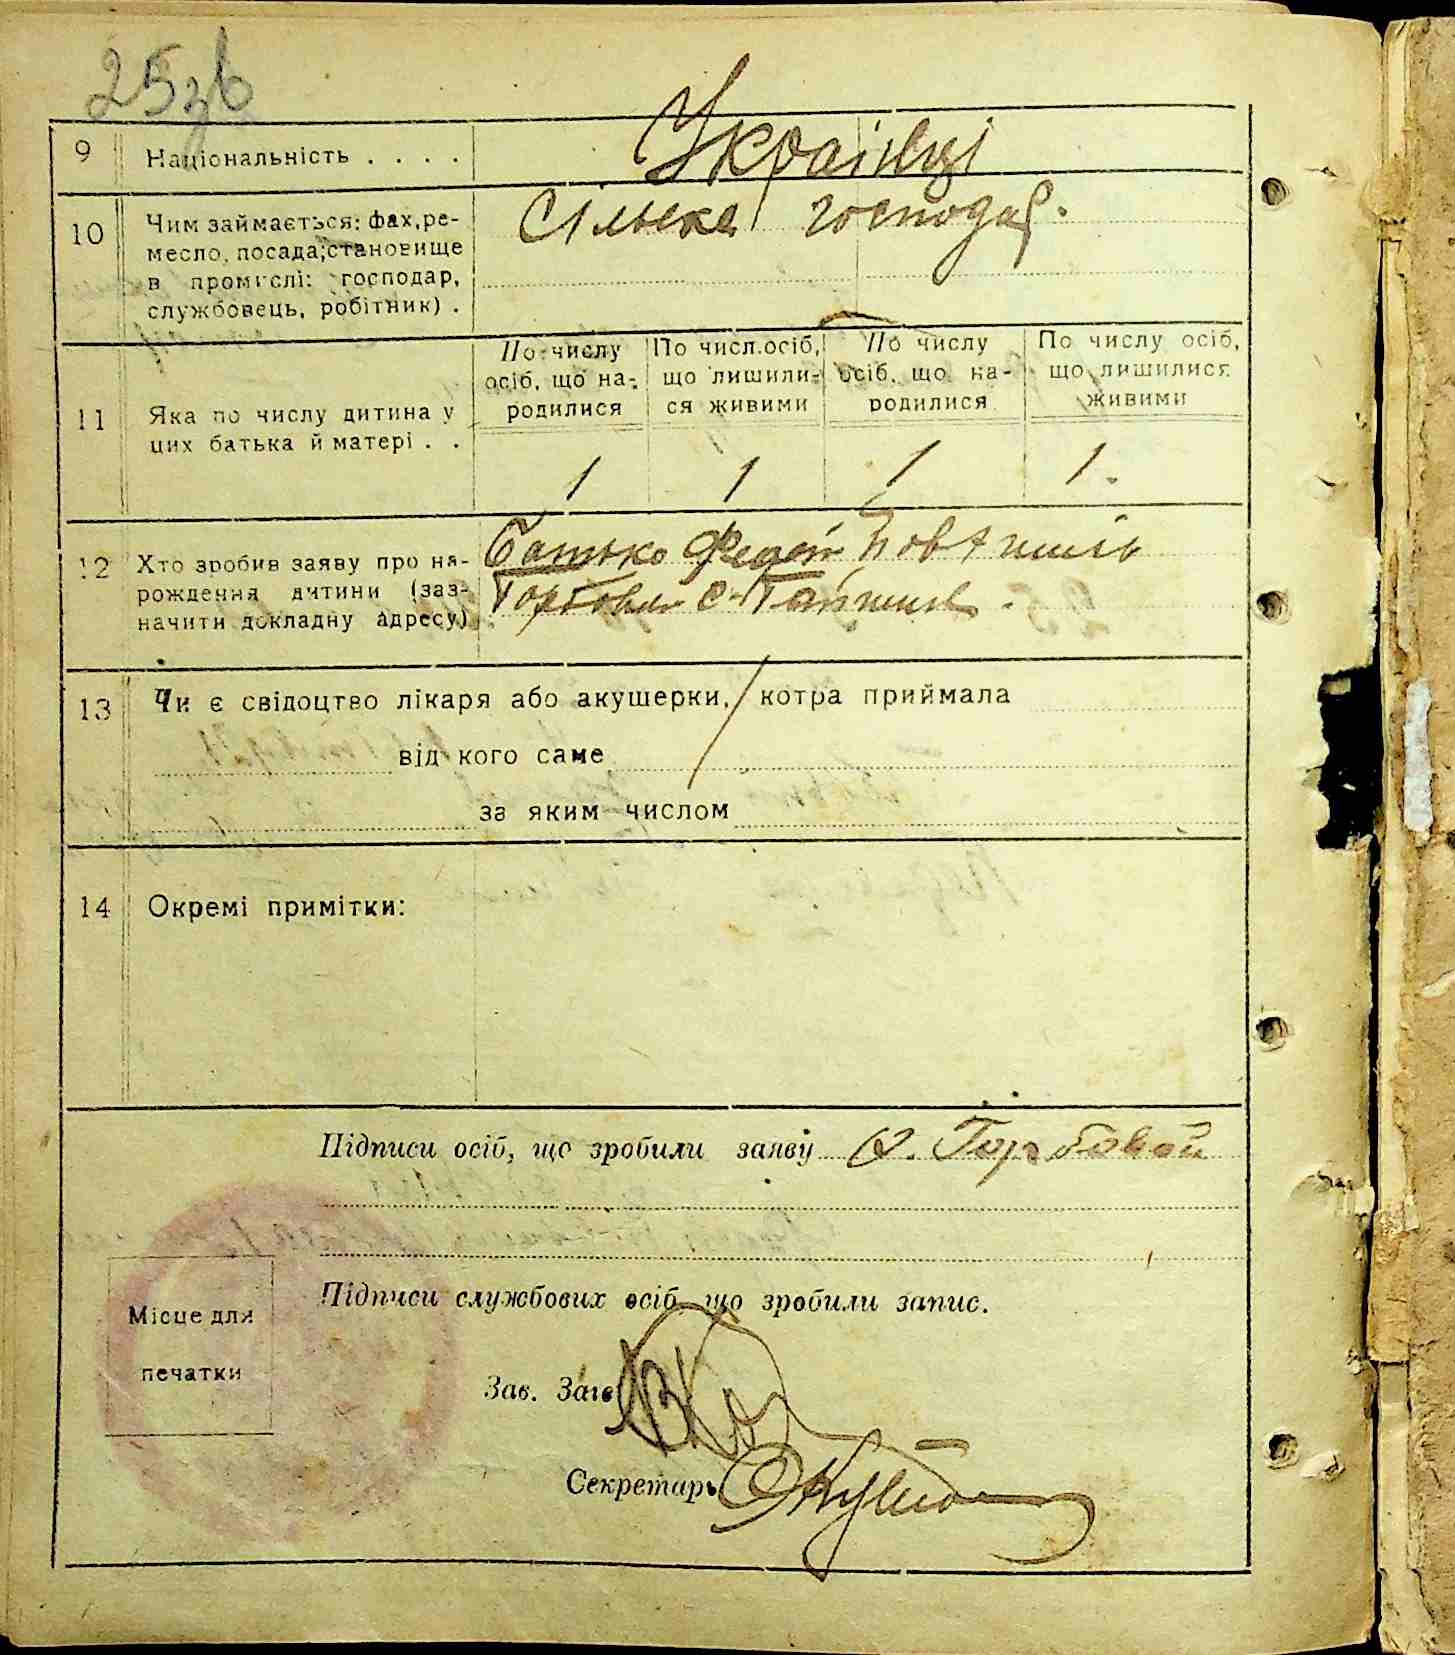 25зв
9 Національність . . . . Українці
10 Чим займається: фах, ре-
месло, посада; становище
в промислі: господар,
службовець, робітник) .
Сільске господар.
11 Яка по числу дитина у
цих батька й матері . .
По числу
осіб, що на-
родилися
По числ. осіб,
що лишили-
ся живими
По числу
осіб, що на-
родилися
По числу осіб,
що лишилися
живими
1 1 1 1.
12 Хто зробив заяву про на-
рождення дитини (заз-
начити докладну адресу)
Батько Федот
Горбовий с.
13 Чи є свідоцтво лікаря або акушерки, котра приймала
від кого саме
за яким числом
14 Окремі примітки:
Підписи осіб, що зробили заяву Ф. Горбовой
Місце для
печатки
Підписи службових осіб, що зробили запис.
Зав. Загс
Секретарь